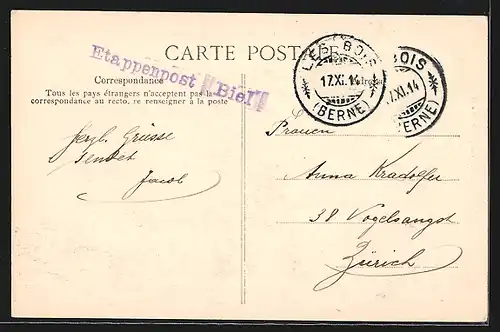 CARTE POSTALE
Etappenpost Biel
Correspondance
Tous les pays étrangers n'acceptent pas la
correspondance au recto, se renseigner à la poste
LES BOIS
17.XI.14
(BERNE)
BOIS
7.XI.14
BERNE)
Herzl. Grüsse
sendet
Jacob
Anna Kradolfer
38 Vogelsangst
Zürich